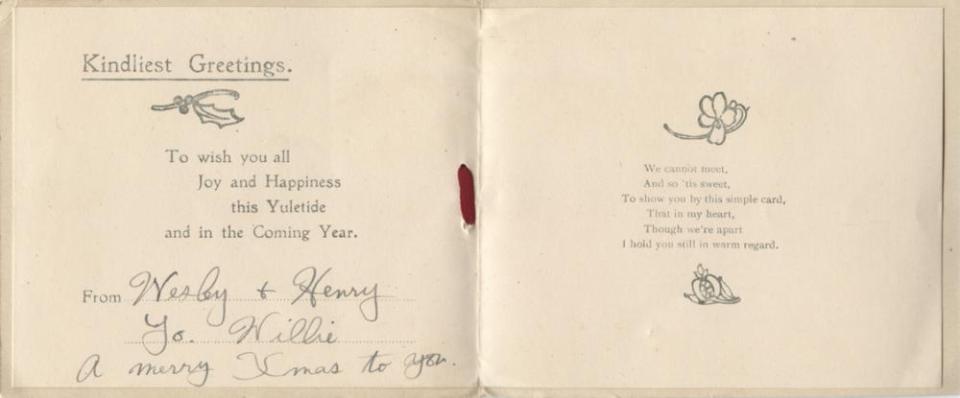 Kindliest Greetings.
To wish you all
Joy and Happiness
this Yuletide
and in the Coming Year.
From Wesley + Henry
To. Willie
A merry Xmas to you.
We cannot meet,
And so 'tis sweet,
To show you by this simple card,
That in my heart,
Though we're apart
I hold you still in warm regard.